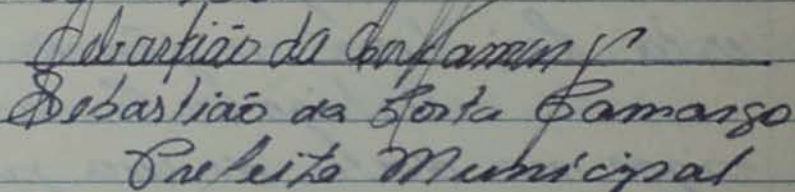 Sebastião da Costa Camargo
Sebastião da Costa Camargo
Prefeito Municipal